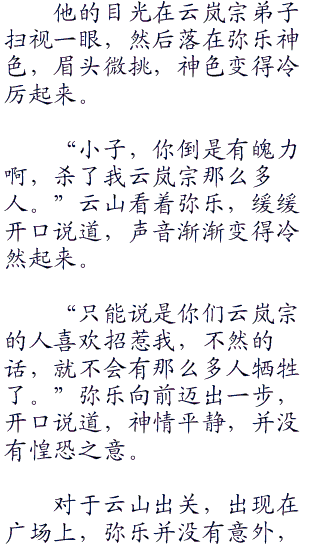 他的目光在云岚宗弟子
扫视一眼，然后落在弥乐神
色，眉头微挑，神色变得冷
厉起来。
“小子，你倒是有魄力
啊，杀了我云岚宗那么多
人。”云山看着弥乐，缓缓
开口说道，声音渐渐变得冷
然起来。
“只能说是你们云岚宗
的人喜欢招惹我，不然的
话，就不会有那么多人牺牲
了。”弥乐向前迈出一步，
开口说道，神情平静，并没
有惶恐之意。
对于云山出关，出现在
广场上，弥乐并没有意外，